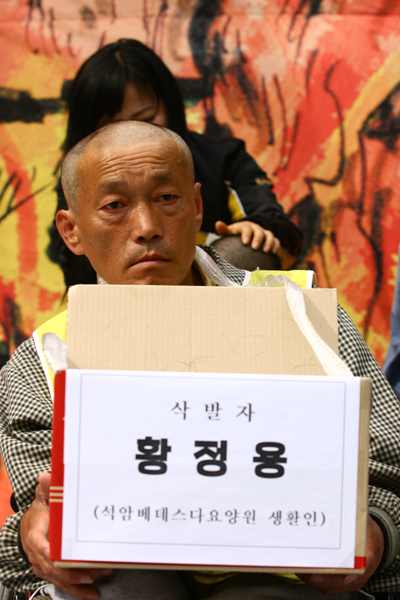 삭발자
황정용
(석암베데스다요양원 생활인)